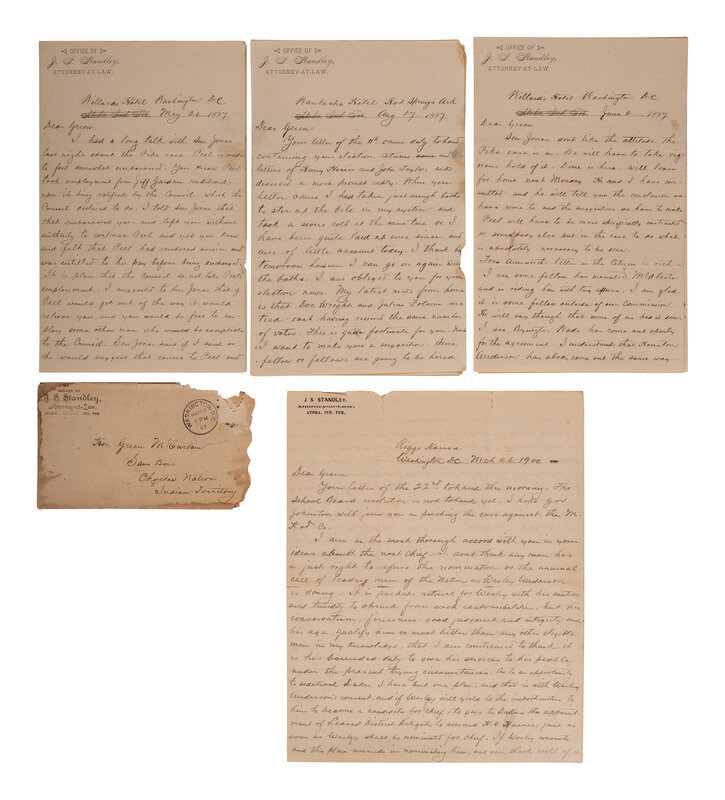 OFFICE OF
J. S. Standley,
ATTORNEY-AT-LAW.
Willards Hotel Washington DC
Atoka, Ind. Ter. May 26 1897
Dear Green
I had a long talk with Sen Jones
last night about the Pike case. Peel is made
to feel somewhat embarrassed. You know Peel
took employment from Jeff Gardner conditioned
upon it being ratified by the Council which the
Council declined to do. I told Sen Jones that
that embarrassed you and left you without
authority to continue Peel and yet you knew
and felt that Peel had rendered service and
was entitled to his pay before being discharged.
It is plain that the Council do not like Peels
employment. I suggested to Sen Jones that if
Peel would get out of the way it would
relieve you, and you would be free to em-
ploy some other man who would be acceptable
to the Council. Sen Jones said if I said so
he would suggest that course to Peel and
OFFICE OF
J. S. Standley,
ATTORNEY-AT-LAW.
Waukesha Hotel Hot Springs Ark
Atoka, Ind. Ter. Aug 17 1897
Dear Green
Your letter of the came duly to hand
containing your election returns and the
letters of Henry Harris and John Taylor, and
deserved a more prompt reply. When your
letter came I had taken just enough baths
to stir up the bile in my system and
took a severe cold at the same time so I
have been quite laid up ever since, and
am of little account today. I think by
tomorrow however I can go on again with
the baths. I am obliged to you for your
election news. My latest news from home
is that Doc Wright and Julius Folsom are
tied each having received the same number
of votes. This is quite fortunate for you. Now
I want to make you a suggestion. Some
fellow or fellows are going to be hired
OFFICE OF
J. S. Standley,
ATTORNEY-AT-LAW.
Willards Hotel Washington DC
Atoka, Ind. Ter. June 2 1897
Dear Green
Sen Jones dont like the attitude the
Pike case is in. We will have to take vig-
orous hold of it. Dome is here will leave
for home next Monday. He and I have con-
sulted and he will tell you the conclusion we
have come to and the suggestions we have to make
Peel will have to be most specifically instructed
or somebody else put in the case to do what
is absolutely necessary to be done.
Tom Ainsworth letter in the Citizen is rich
I see some fellow has mounted McAlester
and is riding him with two spurs. I am glad
it is some fellow outside of our Commission
He will say though that some of us has it done
I see Byington Wade has come out openly
for the agreement. I understand that Houston
Anderson has also come out the same way
RETURN TO
J. S. Standley,
Attorney-at-Law,
ATOKA, IND. TER.
WASHINGTON, D.C.
97
Hon Green McCurtain
Sans Bois
Choctaw Nation
Indian Territory
J. S. STANDLEY,
Attorney-at-Law,
ATOKA, IND. TER.
Riggs House
Washington DC Mch 26 1900
Dear Green
Your letter of the 22nd to hand this morning. The
School Board resolution is not to hand yet. I hope Gov
Johnston will join you in pushing the case against the M.
K & T. Co.
I am in the most thorough accord with you in your
ideas about the next Chief. I dont think any man has
a just right to refuse the nomination or the universal
call of leading men of the Nation as Wesley Anderson
is doing. It is perhaps natural for Wesley with his caution
and timidity to shrink from such responsibilities, but his
conservatism, firmness, good judgement and integrity and
his age qualify him so much better than any other eligible
man in my knowledge, that I am constrained to think it
is his bounden duty to give his services to his people
under the present trying circumstances. As to an opportunity
to sidetrack Dukes I have but one plan; and that is with Wesley
Anderson's consent, and if Wesley will yield to the importunities to
him to become a candidate for chief, to give to Dukes the appoint-
ment of Leased District Delegate to succeed H. C. Harris, just as
soon as Wesley shall be nominated for chief. If Wesley consents
and the plan succeeds in nominating him, and you think well of it